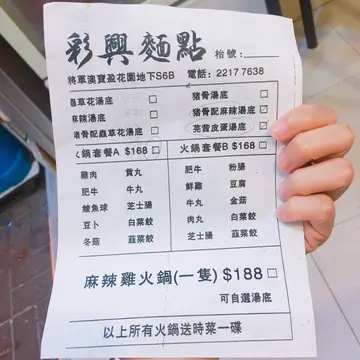 彩興麵點 枱號：
將軍澳寶盈花園地下S6B 電話：2217 7638
蟲草花湯底 □ 猪骨湯底 □
麻辣湯底 □ 猪骨配麻辣湯底 ☑
猪骨配蟲草花湯底 □ 芫茜皮蛋湯底 ☑
火鍋套餐A $168 □ 火鍋套餐B $168 □
雞肉 貢丸 肥牛 粉腸
肥牛 牛丸 鮮雞 豆腐
鯪魚球 芝士腸 牛丸 金菇
豆卜 白菜餃 肉丸 白菜餃
冬菇 韮菜餃 芝士腸 韮菜餃
麻辣雞火鍋(一隻) $188 □
可自選湯底
以上所有火鍋送時菜一碟